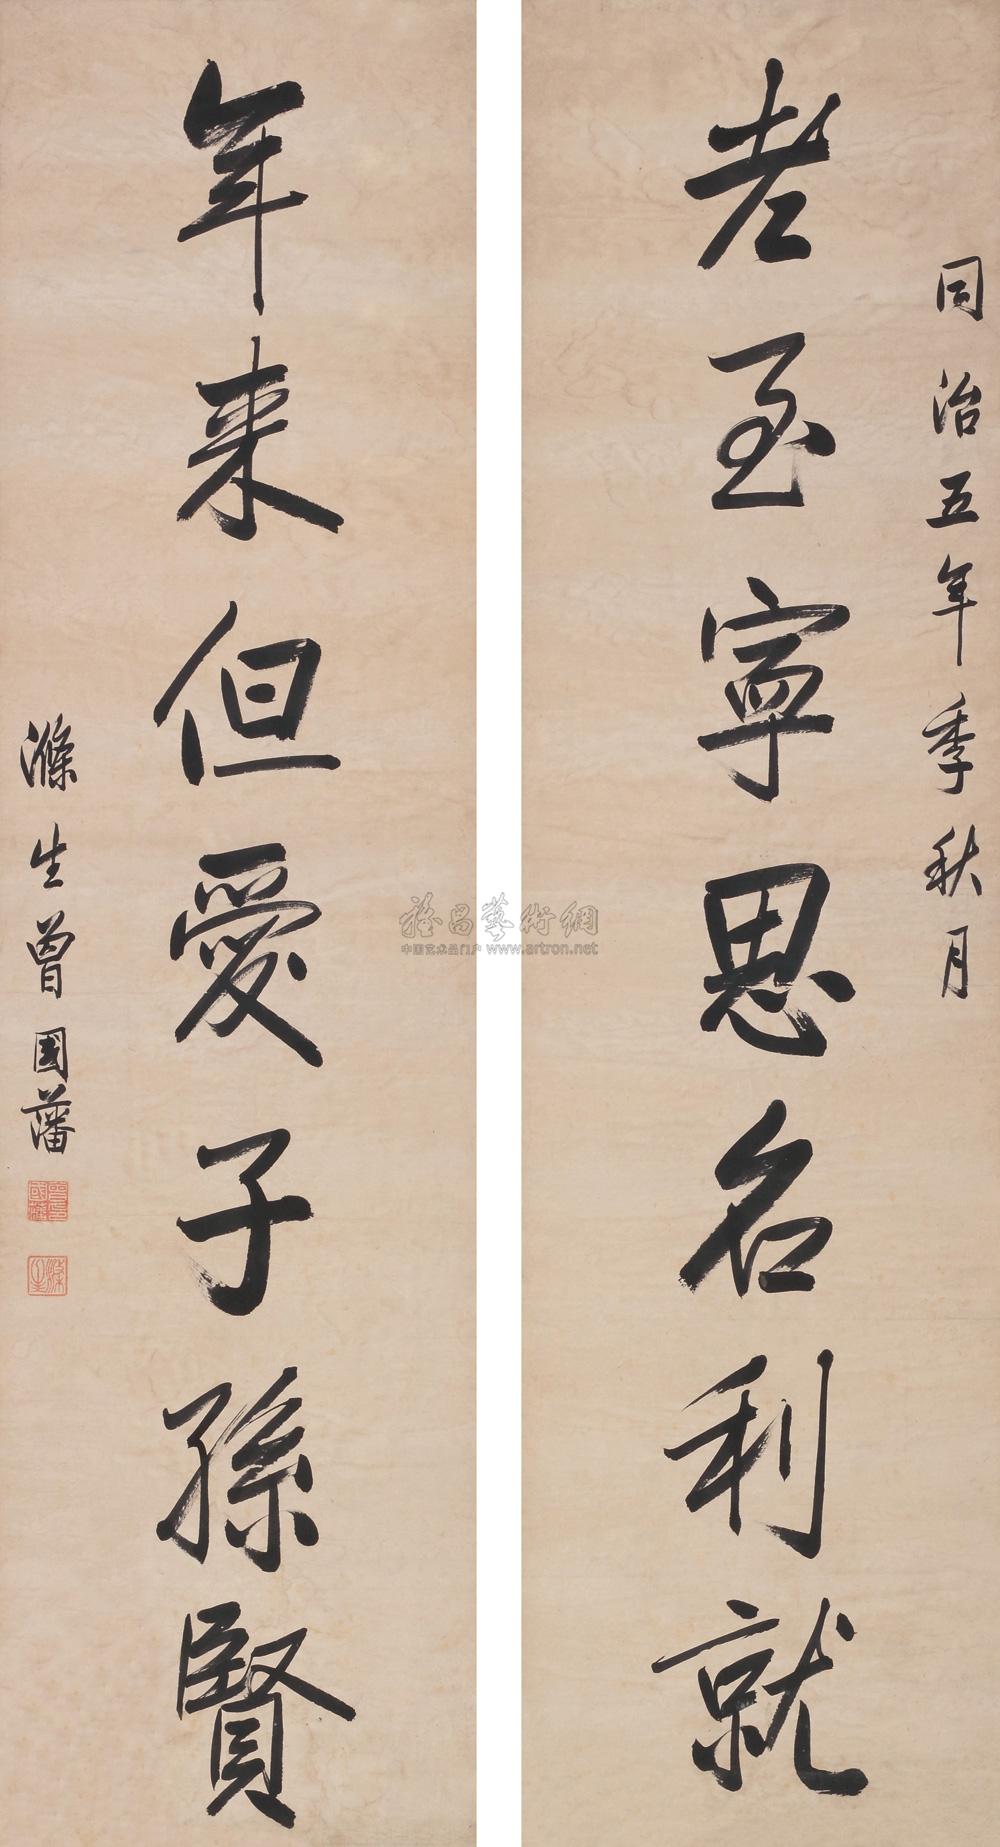 同治五年季秋月
老至寧思名利就
年来但愛子孫賢
滌生曾國藩
雅昌藝術網
中国艺术品门户 www.artron.net